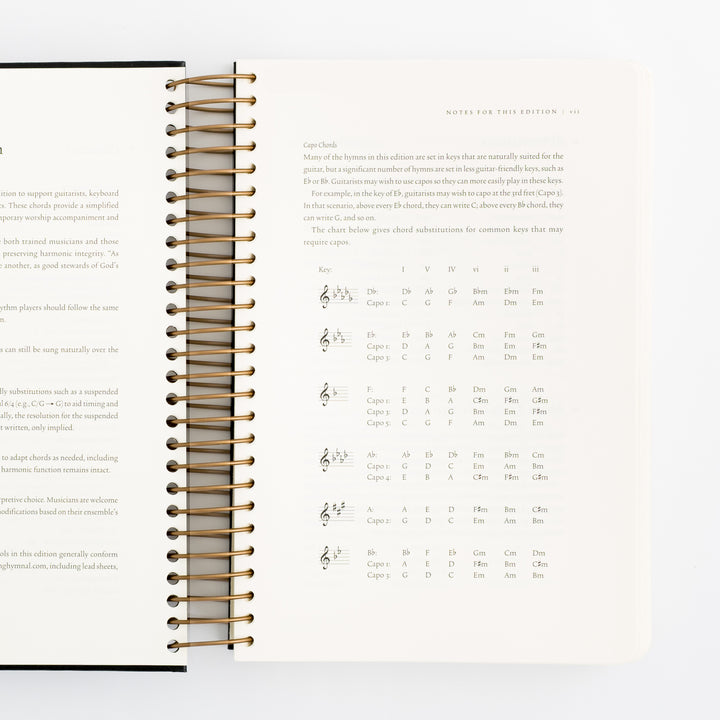 n
ition to support guitarists, keyboard
s. These chords provide a simplified
mporary worship accompaniment and
both trained musicians and those
preserving harmonic integrity. “As
e another, as good stewards of God’s
ythm players should follow the same
n.
s can still be sung naturally over the
lly substitutions such as a suspended
d 6/4 (e.g., C/G → G) to aid timing and
ally, the resolution for the suspended
t written, only implied.
to adapt chords as needed, including
harmonic function remains intact.
rpretive choice. Musicians are welcome
modifications based on their ensemble’s
ols in this edition generally conform
nghymnal.com, including lead sheets,
NOTES FOR THIS EDITION | vii
Capo Chords
Many of the hymns in this edition are set in keys that are naturally suited for the
guitar, but a significant number of hymns are set in less guitar-friendly keys, such as
E♭ or B♭. Guitarists may wish to use capos so they can more easily play in these keys.
For example, in the key of E♭, guitarists may wish to capo at the 3rd fret (Capo 3).
In that scenario, above every E♭ chord, they can write C; above every B♭ chord, they
can write G, and so on.
The chart below gives chord substitutions for common keys that may
require capos.
Key: I V IV vi ii iii
D♭: D♭ A♭ G♭ B♭m E♭m Fm
Capo 1: C G F Am Dm Em
E♭: E♭ B♭ A♭ Cm Fm Gm
Capo 1: D A G Bm Em F♯m
Capo 3: C G F Am Dm Em
F: F C B♭ Dm Gm Am
Capo 1: E B A C♯m F♯m G♯m
Capo 3: D A G Bm Em F♯m
Capo 5: C G F Am Dm Em
A♭: A♭ E♭ D♭ Fm B♭m Cm
Capo 1: G D C Em Am Bm
Capo 4: E B A C♯m F♯m G♯m
A: A E D F♯m Bm C♯m
Capo 2: G D C Em Am Bm
B♭: B♭ F E♭ Gm Cm Dm
Capo 1: A E D F♯m Bm C♯m
Capo 3: G D C Em Am Bm